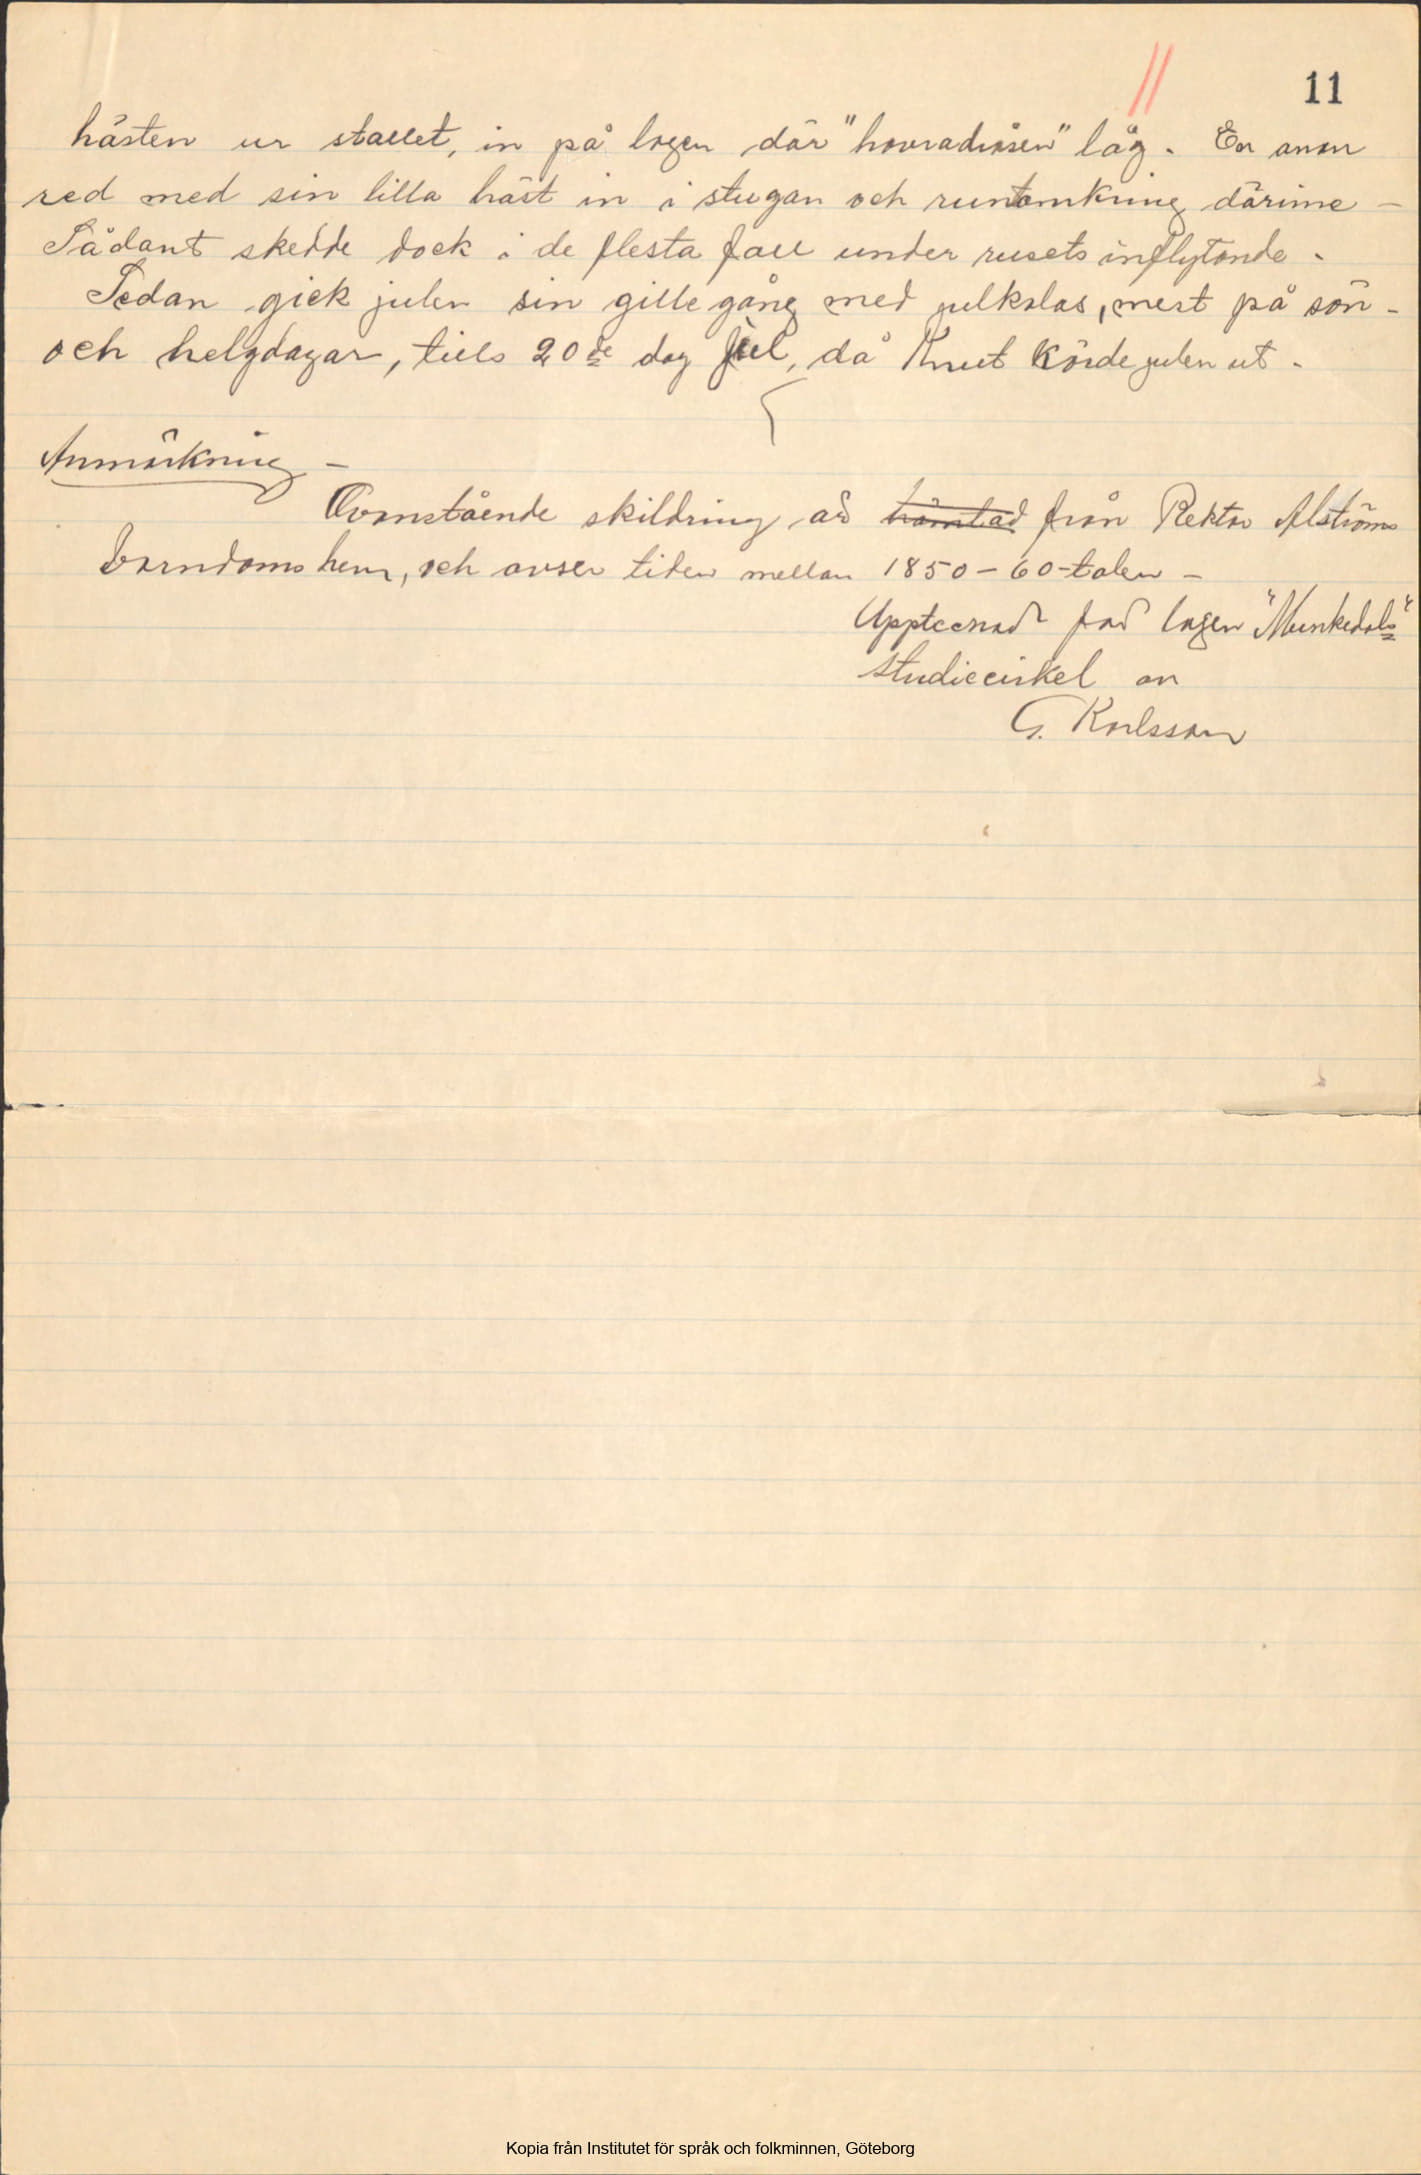 11
hästen ur stallet, in på logen där "havradråsen" låg. En anan
red med sin lilla häst in i stugan och runtomkring därinne -
Sådant skedde dock i de flesta fall under rusets inflytande.
Sedan gick julen sin gille gång med julkalas, mest på sön-
och helgdagar, tills 20de dag Jul, då Knut körde julen ut.
Anmärkning -
Ovanstående skildring är hämtad från Rektor Alströms
barndomshem, och avser tiden mellan 1850-60-talen -
Upptecnad för logen "Munkedals"
studiecirkel av
G. Karlsson
Kopia från Institutet för språk och folkminnen, Göteborg